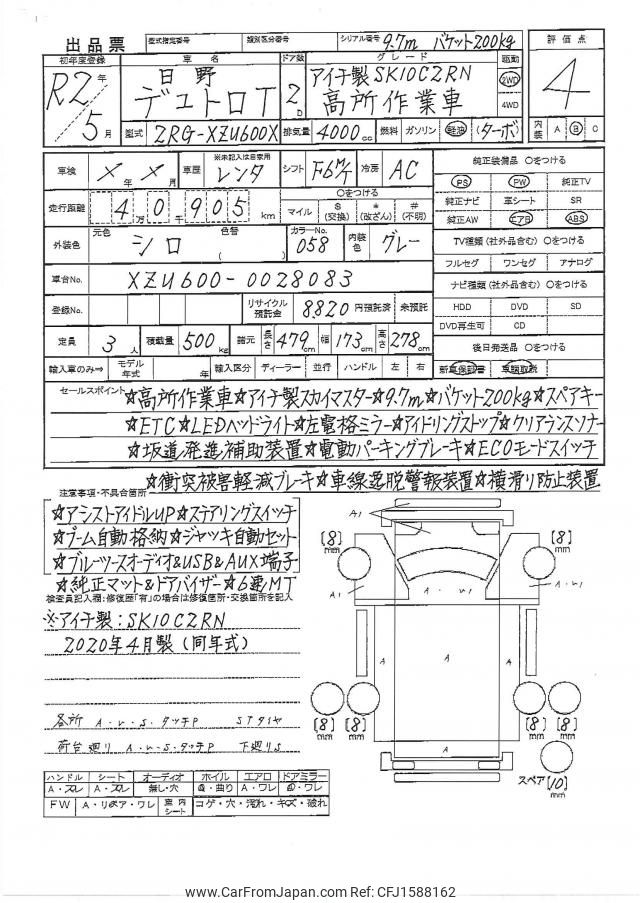 出品票
型式指定番号 類別区分番号 シリアル番号 9.7m バケット200kg
評価点
4
初年度登録 車名 ドア数 グレード 駆動
R2年/5月
日野
デュトロT
2D
アイチ製SK10C2RN
高所作業車
2WD
4WD
型式 2RG-XZU600X 排気量 4000cc 燃料 ガソリン 軽油 (ターボ)
内装 A B C
車検 ×年×月 車歴 ※未記入は自家用 レンタ シフト F6MT 冷房 AC
純正装備品 ○をつける
PS PW 純正TV
走行距離 4万0千905km
○をつける
マイル $(交換) *(改ざん) #(不明)
純正ナビ 車シート SR
純正AW エアB ABS
外装色 元色 シロ 色替 ( ) カラーNo. 058 内装色 グレー
TV種類(社外品含む)○をつける
フルセグ ワンセグ アナログ
車台No. XZU600-0028083
ナビ種類(社外品含む)○をつける
登録No. リサイクル預託金 8,820円預託済 未預託
HDD DVD SD
DVD再生可 CD
定員 3人 積載量 500kg 諸元 長さ479cm 幅173cm 高さ278cm
後日発送品 ○をつける
輸入車のみ⇒ モデル年式 年 輸入区分 ディーラー 並行 ハンドル 左 右
新車保証書 車輌取説
セールスポイント
☆高所作業車☆アイチ製スカイマスター☆9.7m☆バケット200kg☆スペアキー
☆ETC☆LEDヘッドライト☆左電格ミラー☆アイドリングストップ☆クリアランスソナー
☆坂道発進補助装置☆電動パーキングブレーキ☆ECOモードスイッチ
☆衝突被害軽減ブレーキ☆車線逸脱警報装置☆横滑り防止装置
注意事項・不具合箇所
☆アシストアイドルUP☆ステアリングスイッチ
☆ブーム自動格納☆ジャッキ自動セット
☆ブルーツースオーディオ&USB&AUX端子
☆純正マット&ドアバイザー☆6速MT
検査員記入欄:修復歴「有」の場合は修復箇所・交換箇所を記入
※アイチ製:SK10C2RN
2020年4月製(同年式)
各所 A・U・S・タッチP STタイヤ
荷台廻り A・U・S・タッチP 下廻りS
A1
[8]mm [8]mm
A1 A・U1 A・U1
A A A
[8]mm [8]mm [8]mm [8]mm
A
スペア[10]mm
ハンドル シート オーディオ ホイル エアロ ドアミラー
A・スレ A・スレ 無し・穴 曲り A・ワレ ワレ
FW A・リペア・ワレ 車内シート コゲ・穴・汚れ・キズ・破れ
www.CarFromJapan.com Ref: CFJ1588162